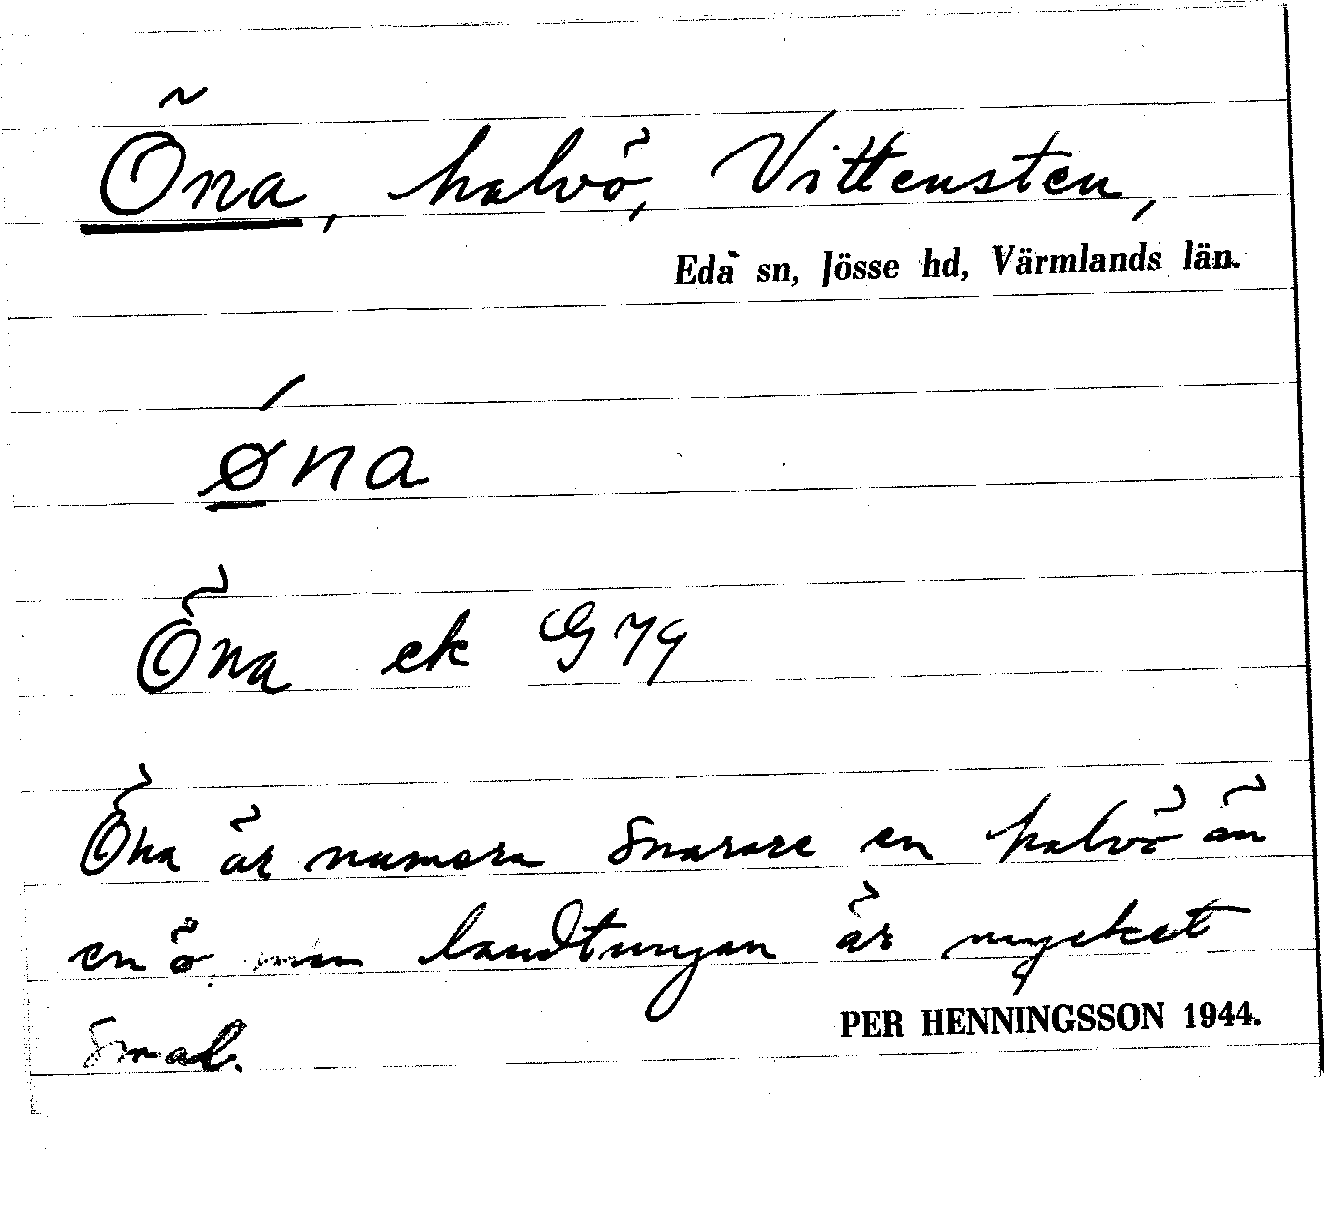 Öna, halvö, Vittensten,
Eda sn, Jösse hd, Värmlands län.
ǿna
Öna ek G 79
Öna är numera snarare en halvö än
en ö men landtungan är mycket
smal.
PER HENNINGSSON 1944.